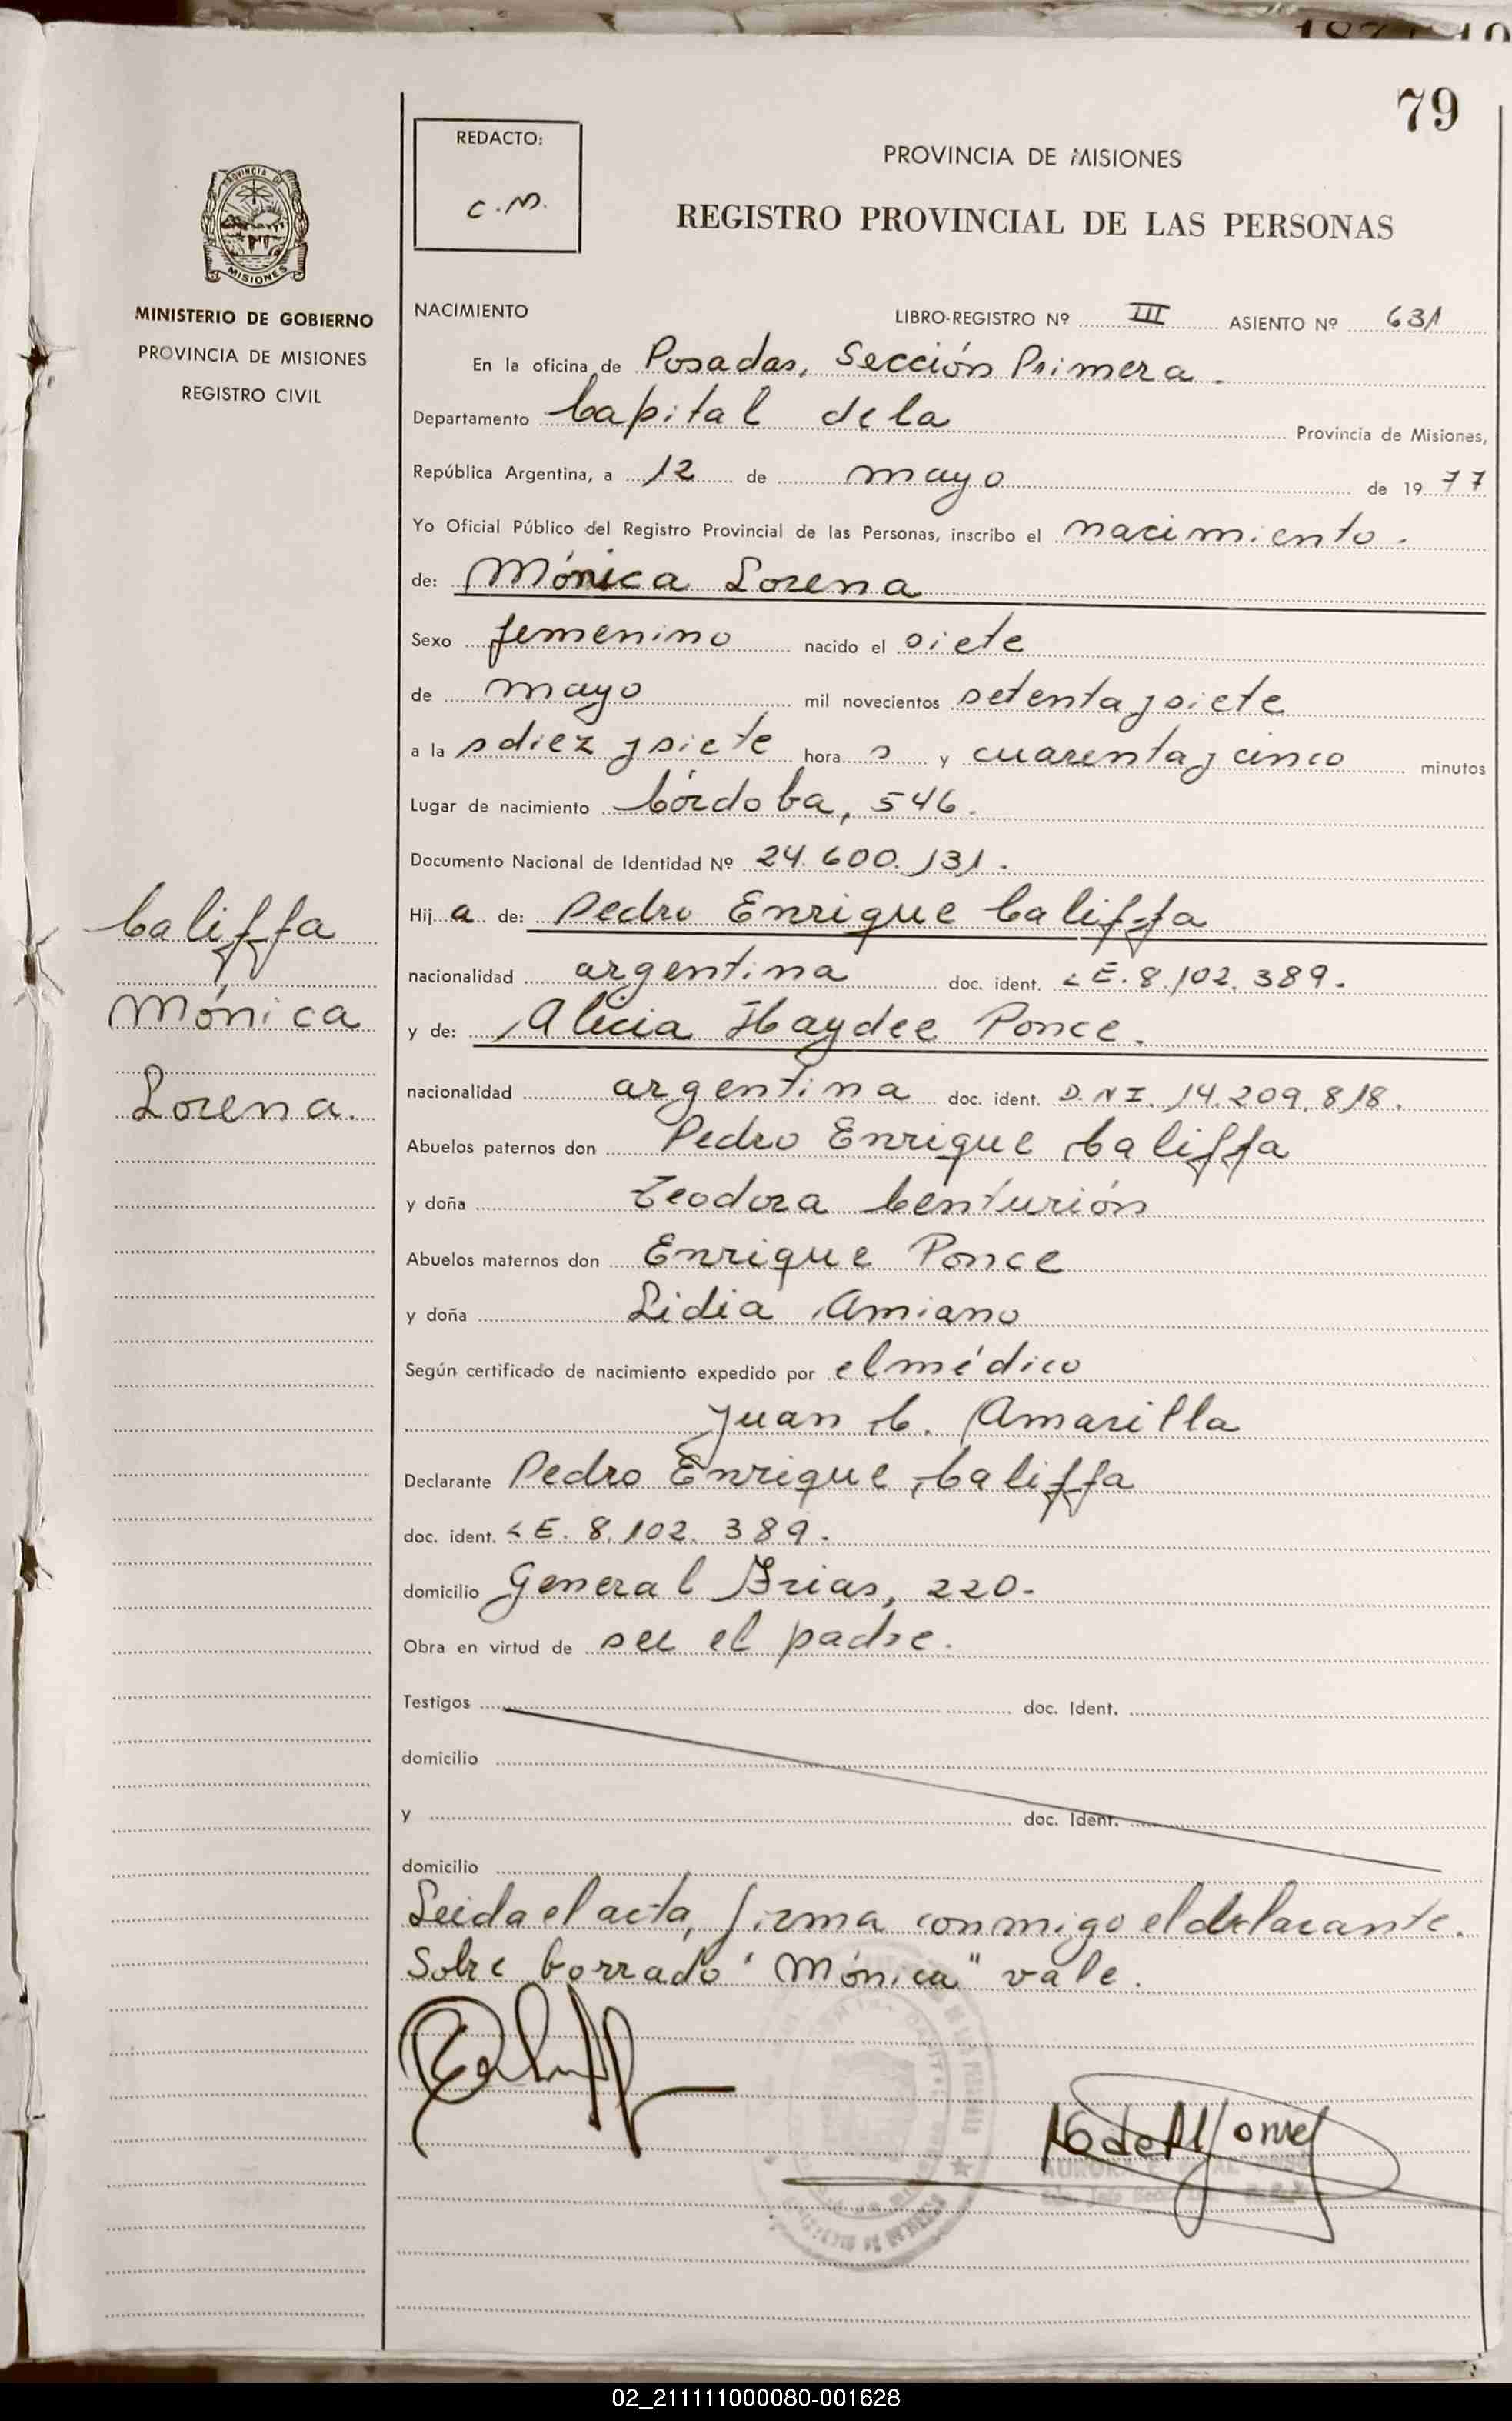 79
REDACTO:
C.M.
PROVINCIA DE MISIONES
REGISTRO PROVINCIAL DE LAS PERSONAS
PROVINCIA DE
MISIONES
MINISTERIO DE GOBIERNO
PROVINCIA DE MISIONES
REGISTRO CIVIL
NACIMIENTO LIBRO-REGISTRO Nº III ASIENTO Nº 631
En la oficina de Posadas, Sección Primera.
Departamento Capital de la Provincia de Misiones,
República Argentina, a 12 de mayo de 1977
Yo Oficial Público del Registro Provincial de las Personas, inscribo el nacimiento.
de: Mónica Lorena
Sexo femenino nacido el siete
de mayo mil novecientos setenta y siete
a la s diez y siete hora s y cuarenta y cinco minutos
Lugar de nacimiento Córdoba, 546.
Documento Nacional de Identidad Nº 24.600.131.
Califfa
Mónica
Lorena.
Hij a de: Pedro Enrique Califfa
nacionalidad argentina doc. ident. LE. 8.102.389.
y de: Alicia Haydee Ponce.
nacionalidad argentina doc. ident. D.N I. 14.209.818.
Abuelos paternos don Pedro Enrique Califfa
y doña Teodora Centurión
Abuelos maternos don Enrique Ponce
y doña Lidia Amiano
Según certificado de nacimiento expedido por el médico
Juan C. Amarilla
Declarante Pedro Enrique Califfa
doc. ident. LE. 8.102.389.
domicilio General Frias, 220-
Obra en virtud de ser el padre.
Testigos doc. Ident.
domicilio
y doc. Ident.
domicilio
Leida el acta, firma conmigo el declarante.
Sobre borrado "Mónica" vale.
02_211111000080-001628